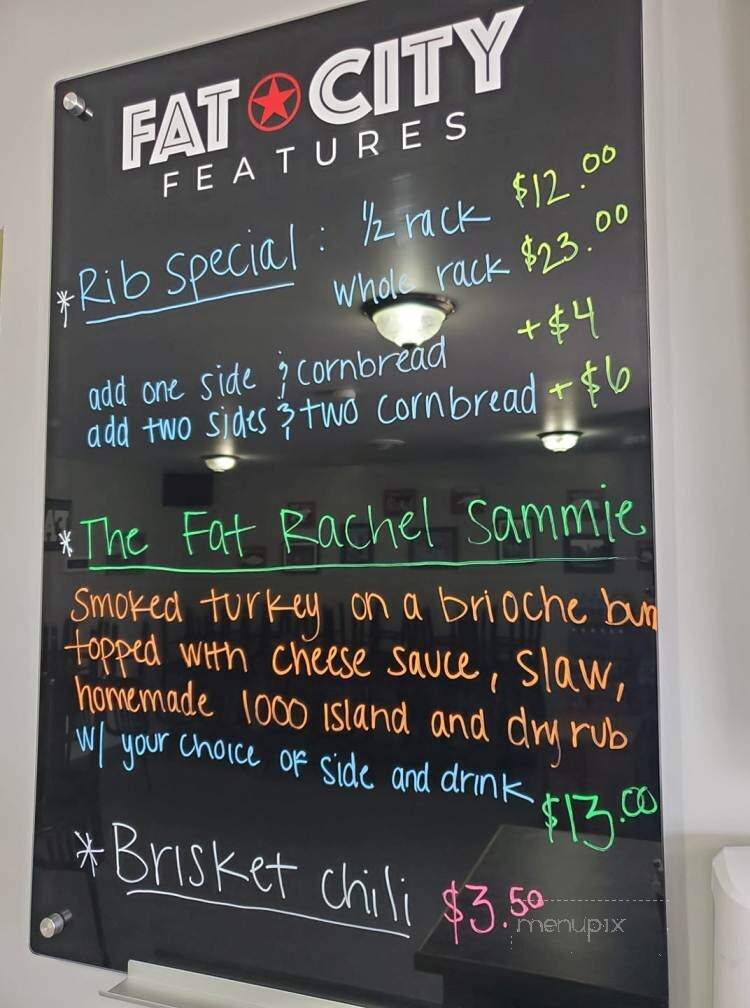 FAT CITY
FEATURES
*Rib Special: 1/2 rack $12.00
whole rack $23.00
add one side & cornbread +$4
add two sides & two cornbread +$6
*The Fat Rachel Sammie
Smoked turkey on a brioche bun
topped with cheese sauce, slaw,
homemade 1000 island and dry rub
w/ your choice of side and drink
$13.00
*Brisket chili $3.50
menupix